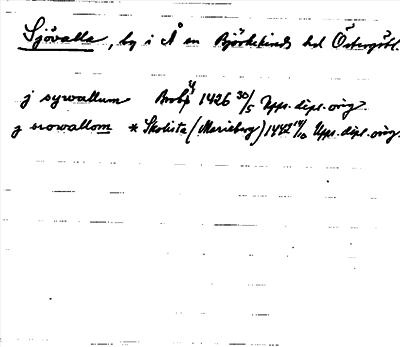 Sjövalla, by i Å sn Björkekinds hd Östergötl.
j syrwallum Broby 1426 30/5 Upps. dipl. orig.
j srowallom * Skokista (Marieberg) 1442 14/10 Upps. dipl. orig.